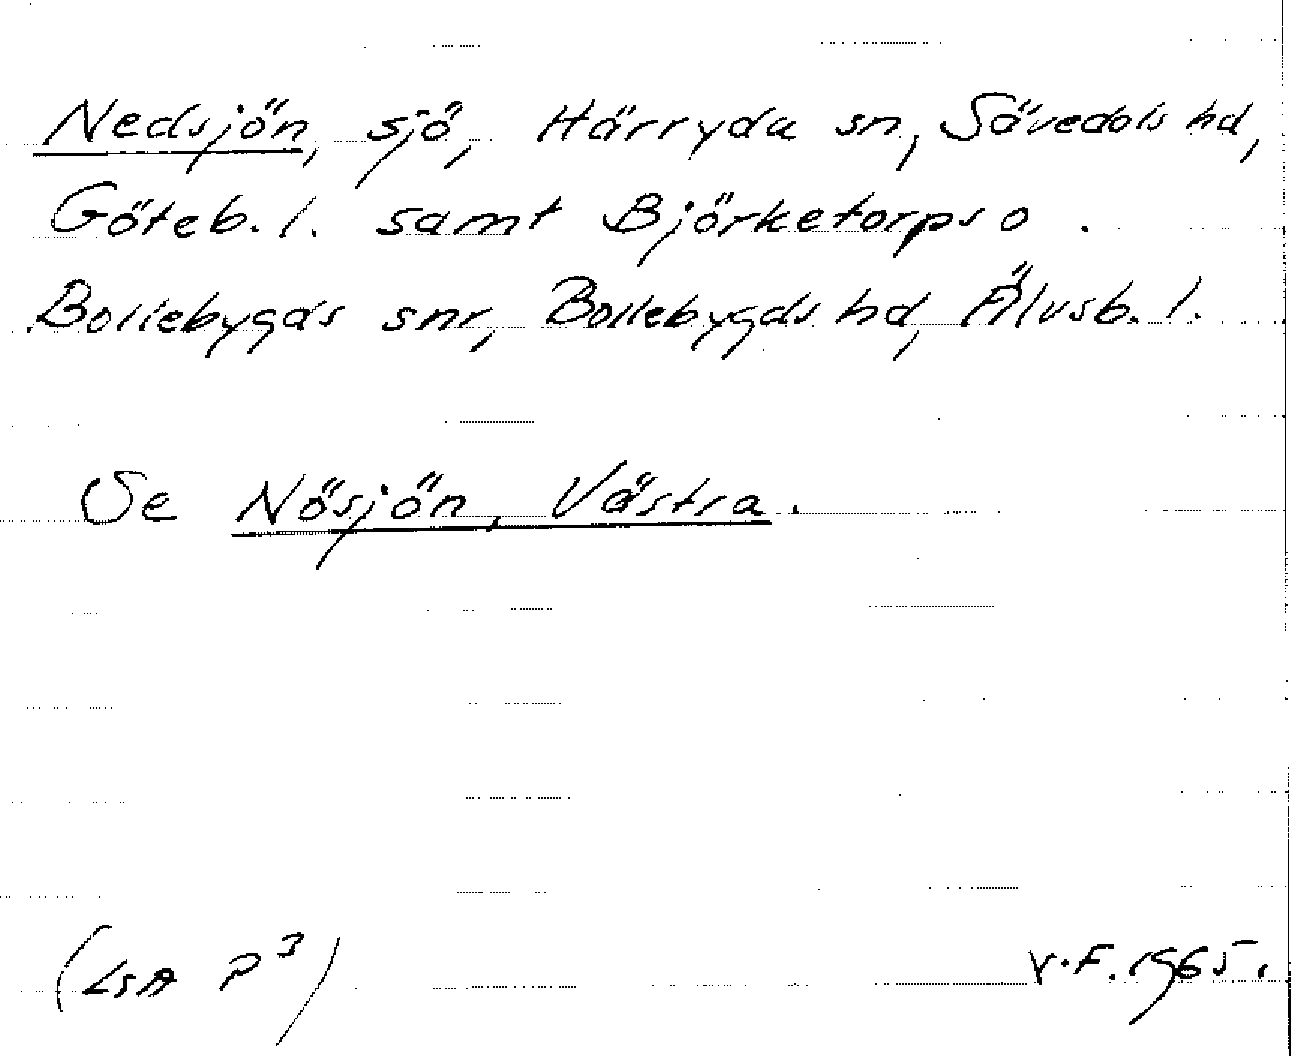 Nedsjön, sjö, Härryda sn, Sävedals hd,
Göteb. l. samt Björketorps o.
Bollebygds snr, Bollebygds hd, Älvsb. l.
Se Nösjön, Västra.
(LSA P3) V.F. 1965.